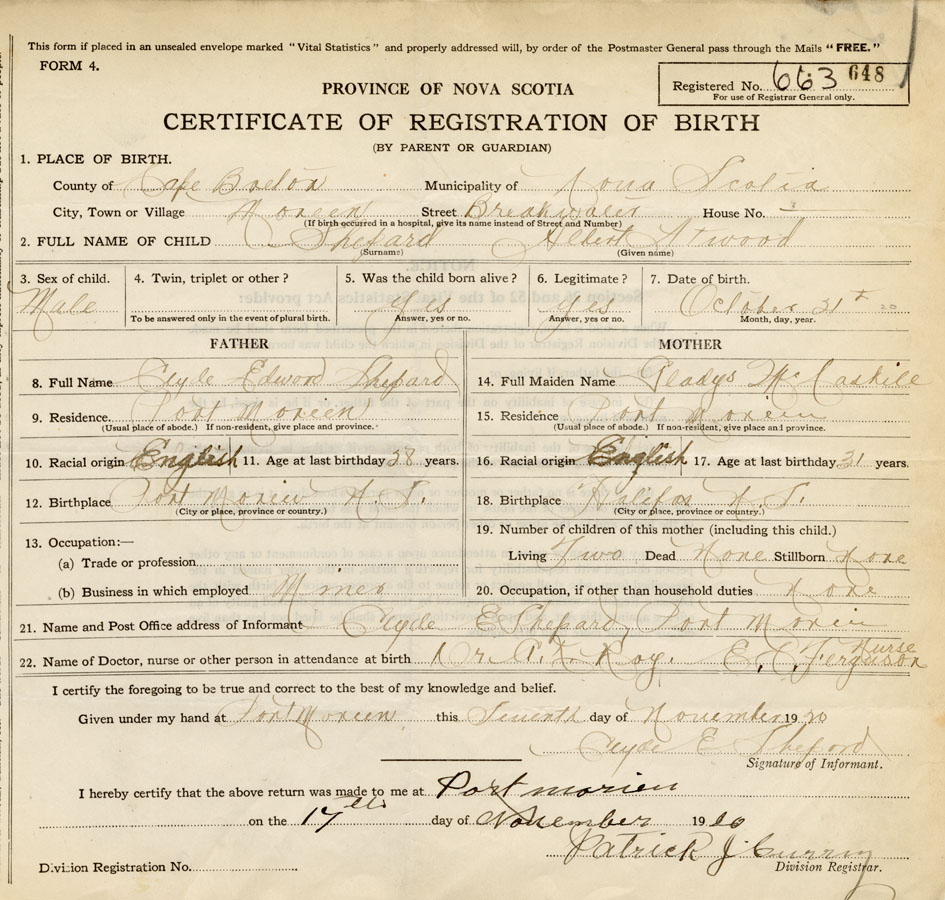 This form if placed in an unsealed envelope marked "Vital Statistics" and properly addressed will, by order of the Postmaster General pass through the Mails "FREE."
FORM 4.
Registered No. 663 648
For use of Registrar General only.
PROVINCE OF NOVA SCOTIA
CERTIFICATE OF REGISTRATION OF BIRTH
(BY PARENT OR GUARDIAN)
1. PLACE OF BIRTH.
County of Cape Breton Municipality of Nova Scotia
City, Town or Village Morien Street Breakwater House No.
(If birth occurred in a hospital, give its name instead of Street and Number)
2. FULL NAME OF CHILD Shepard Albert Atwood
(Surname) (Given name)
3. Sex of child. 4. Twin, triplet or other? 5. Was the child born alive? 6. Legitimate? 7. Date of birth.
Male Yes Yes October 31st 20
To be answered only in the event of plural birth. Answer, yes or no. Answer, yes or no. Month, day, year.
FATHER MOTHER
8. Full Name Clyde Edword Shepard 14. Full Maiden Name Gladys McCaskill
9. Residence. Port Morien 15. Residence Port Morien
(Usual place of abode.) If non-resident, give place and province. (Usual place of abode.) If non-resident, give place and province.
10. Racial origin English 11. Age at last birthday 28 years. 16. Racial origin English 17. Age at last birthday 31 years.
12. Birthplace Port Morien N.S. 18. Birthplace Halifax N.S.
(City or place, province or country.) (City or place, province or country.)
13. Occupation:— 19. Number of children of this mother (including this child.)
(a) Trade or profession Living Two Dead None Stillborn None
(b) Business in which employed Miner 20. Occupation, if other than household duties None
21. Name and Post Office address of Informant Clyde E Shepard, Port Morien
22. Name of Doctor, nurse or other person in attendance at birth Dr. A. K. Roy. E. C. Ferguson Nurse
I certify the foregoing to be true and correct to the best of my knowledge and belief.
Given under my hand at Port Morien this Seventh day of November 1920
Clyde E Sheford
Signature of Informant.
I hereby certify that the above return was made to me at Port morien
on the 17th day of November 1920
Patrick J. Curry
Division Registration No. Division Registrar.